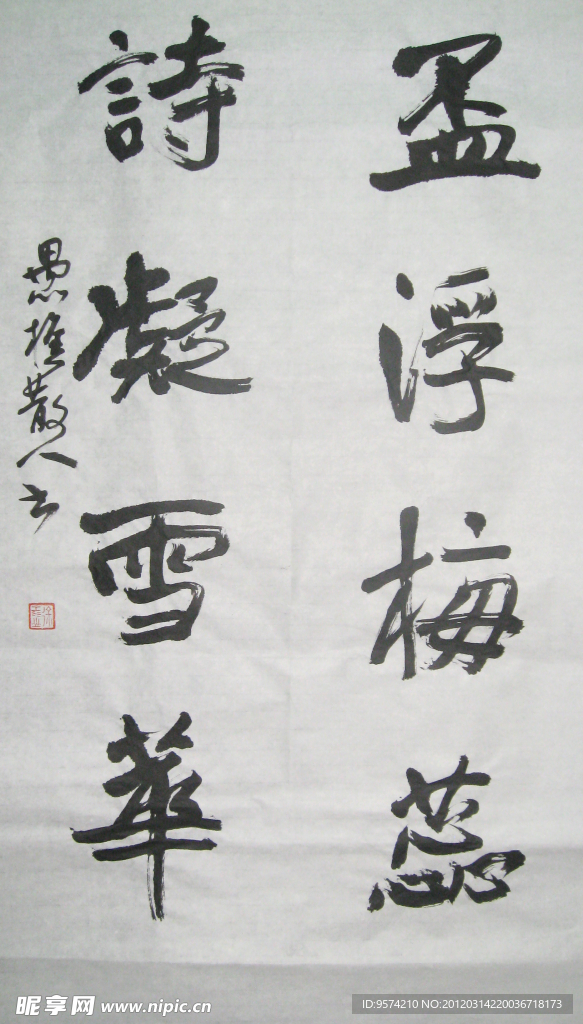 盃浮梅蕊
詩凝雪華
愚散人书
昵享网 www.nipic.cn
ID:9574210 NO:20120314220036718173